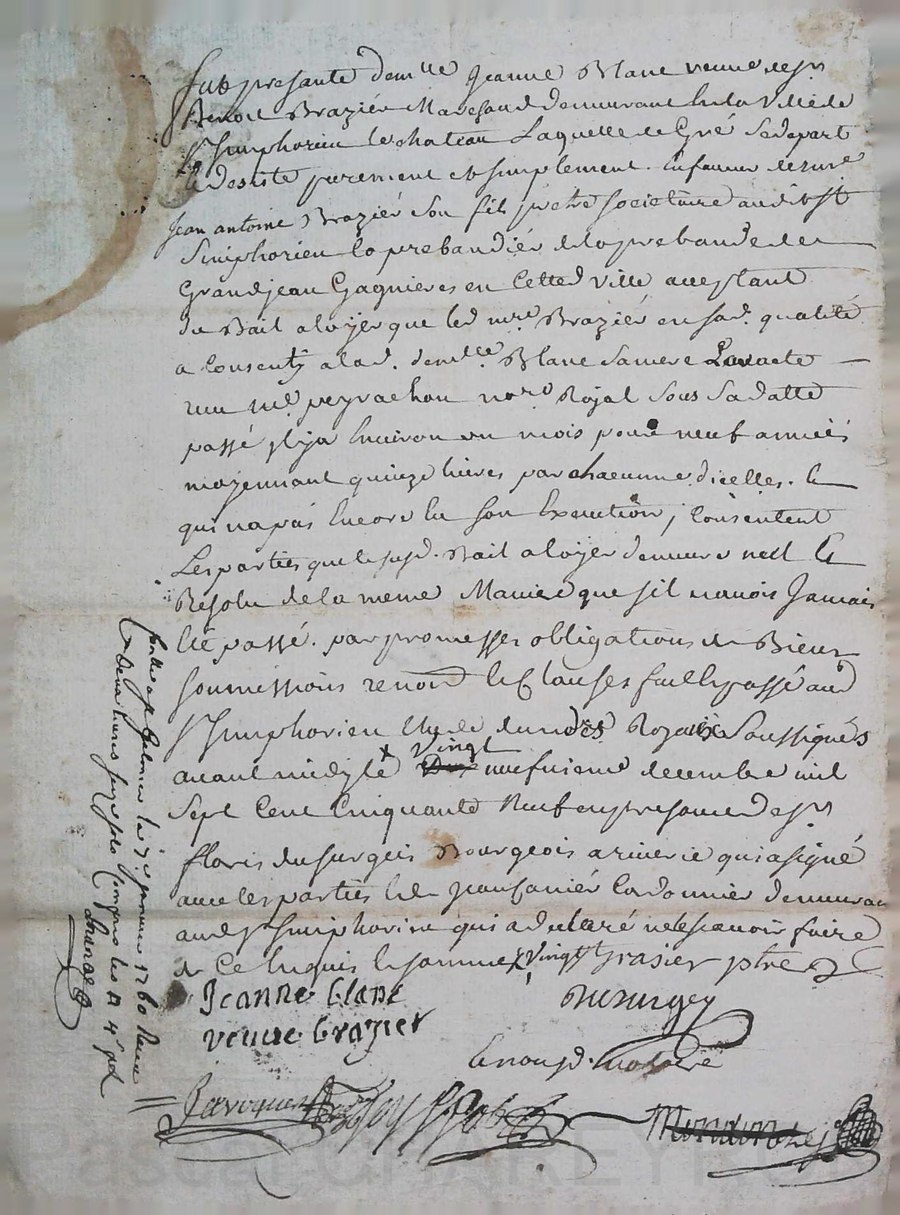 fut presante demlle Jeanne Blanc veuve de sr
Benoit Brazier Marchand demeurant en la ville de
st Simphorien le chateau Laquelle de Gré se depart
et desiste purement et simplement en faveur de mre
Jean antoine Brazier son fils pretre societaire audit st
Simphorien et prebandier de la prebande de
Grandjean Gagnieres en Cette d. ville acceptant
du Bail a loyer que led. mre Brazier en sad. qualité
a Consenty a lad. demlle Blanc sa mere par acte
reçu me peyrachon nore Royal sous sa datte
passé il y a Environ un mois pour neuf années
moyennant quinze livres par chacunne dicelles. et
qui na pas Encore Eu son Execution, Consentent
Les parties que le susd. Bail a loyer demeure nul et
Resolu de la meme Maniere que sil navoit Jamais
Eté passé. par promesses obligations de Biens
soumissions renon. et Clauses fait et passé aud.
st Simphorien Etude du nore Royaux Soussignés
avant midy le x vingt neufvieme decembre mil
sept Cent Cinquante Neuf en presance de sr
floris dusurgeis Bourgeois qui a signé
avec les parties et de Jean fanier Cordonnier demeurant
aud. st Simphorien qui a declaré ne le scavoir faire
de Ce Enquis et sommé x vingt brasier ptre
Jeanne blanc
veuve brazier
Dusurgey
Con. a st Galmier le 7e janvier 1760 Recu
deux livres